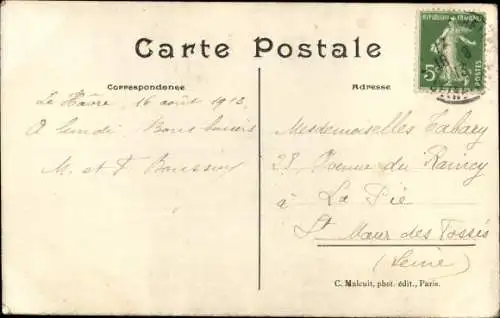 Carte Postale
Correspondence
Adresse
REPUBLIQUE FRANÇAISE
5c
POSTES
Le Hâvre, 16 août 1913,
A lundi, Bons baisers
M. et F.
Mesdemoiselles Tabary
28 Avenue du Raincy
à La Pie
St Maur des Fossés
(Seine)
C. Malcuit, phot. édit., Paris.